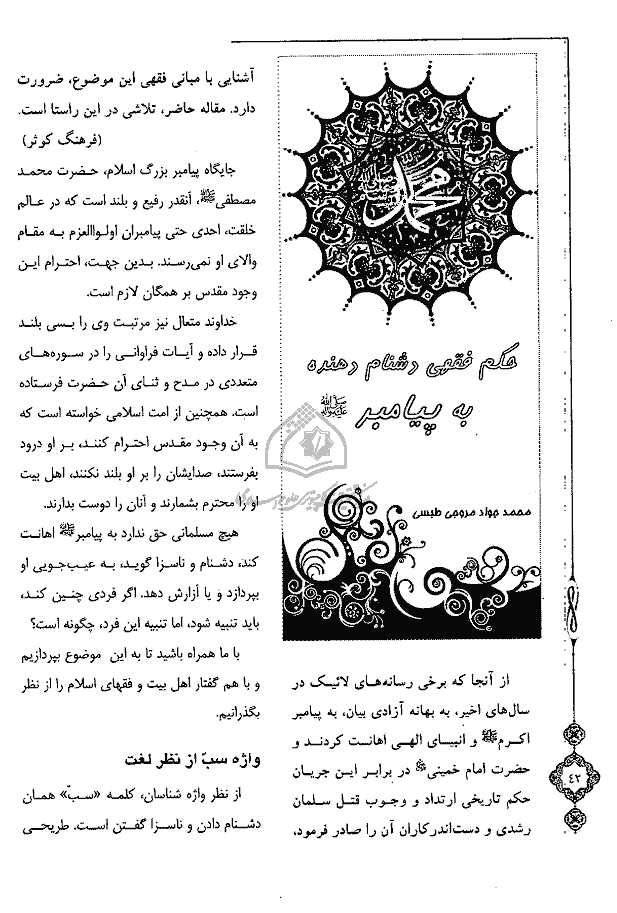 محمد
حکم فقهی دشنام دهنده
به پیامبر ﷺ
محمد جواد مروجی طبسی
از آنجا که برخی رسانه‌های لائیک در
سال‌های اخیر، به بهانه آزادی بیان، به پیامبر
اکرمﷺ و انبیای الهی اهانت کردند و
حضرت امام خمینی در برابر این جریان
حکم تاریخی ارتداد و وجوب قتل سلمان
رشدی و دست‌اندرکاران آن را صادر فرمود،
آشنایی با مبانی فقهی این موضوع، ضرورت
دارد. مقاله حاضر، تلاشی در این راستا است.
(فرهنگ کوثر)
جایگاه پیامبر بزرگ اسلام، حضرت محمد
مصطفیﷺ، آنقدر رفیع و بلند است که در عالم
خلقت، احدی حتی پیامبران اولواالعزم به مقام
والای او نمی‌رسند. بدین جهت، احترام این
وجود مقدس بر همگان لازم است.
خداوند متعال نیز مرتبت وی را بسی بلند
قرار داده و آیات فراوانی را در سوره‌های
متعددی در مدح و ثنای آن حضرت فرستاده
است. همچنین از امت اسلامی خواسته است که
به آن وجود مقدس احترام کنند، بر او درود
بفرستند، صدایشان را بر او بلند نکنند، اهل بیت
او را محترم بشمارند و آنان را دوست بدارند.
هیچ مسلمانی حق ندارد به پیامبرﷺ اهانت
کند، دشنام و ناسزا گوید، به عیب‌جویی او
بپردازد و یا آزارش دهد. اگر فردی چنین کند،
باید تنبیه شود، اما تنبیه این فرد، چگونه است؟
با ما همراه باشید تا به این موضوع بپردازیم
و با هم گفتار اهل بیت و فقهای اسلام را از نظر
بگذرانیم.
واژه سبّ از نظر لغت
از نظر واژه شناسان، کلمه «سبّ» همان
دشنام دادن و ناسزا گفتن است. طریحی
۴۲